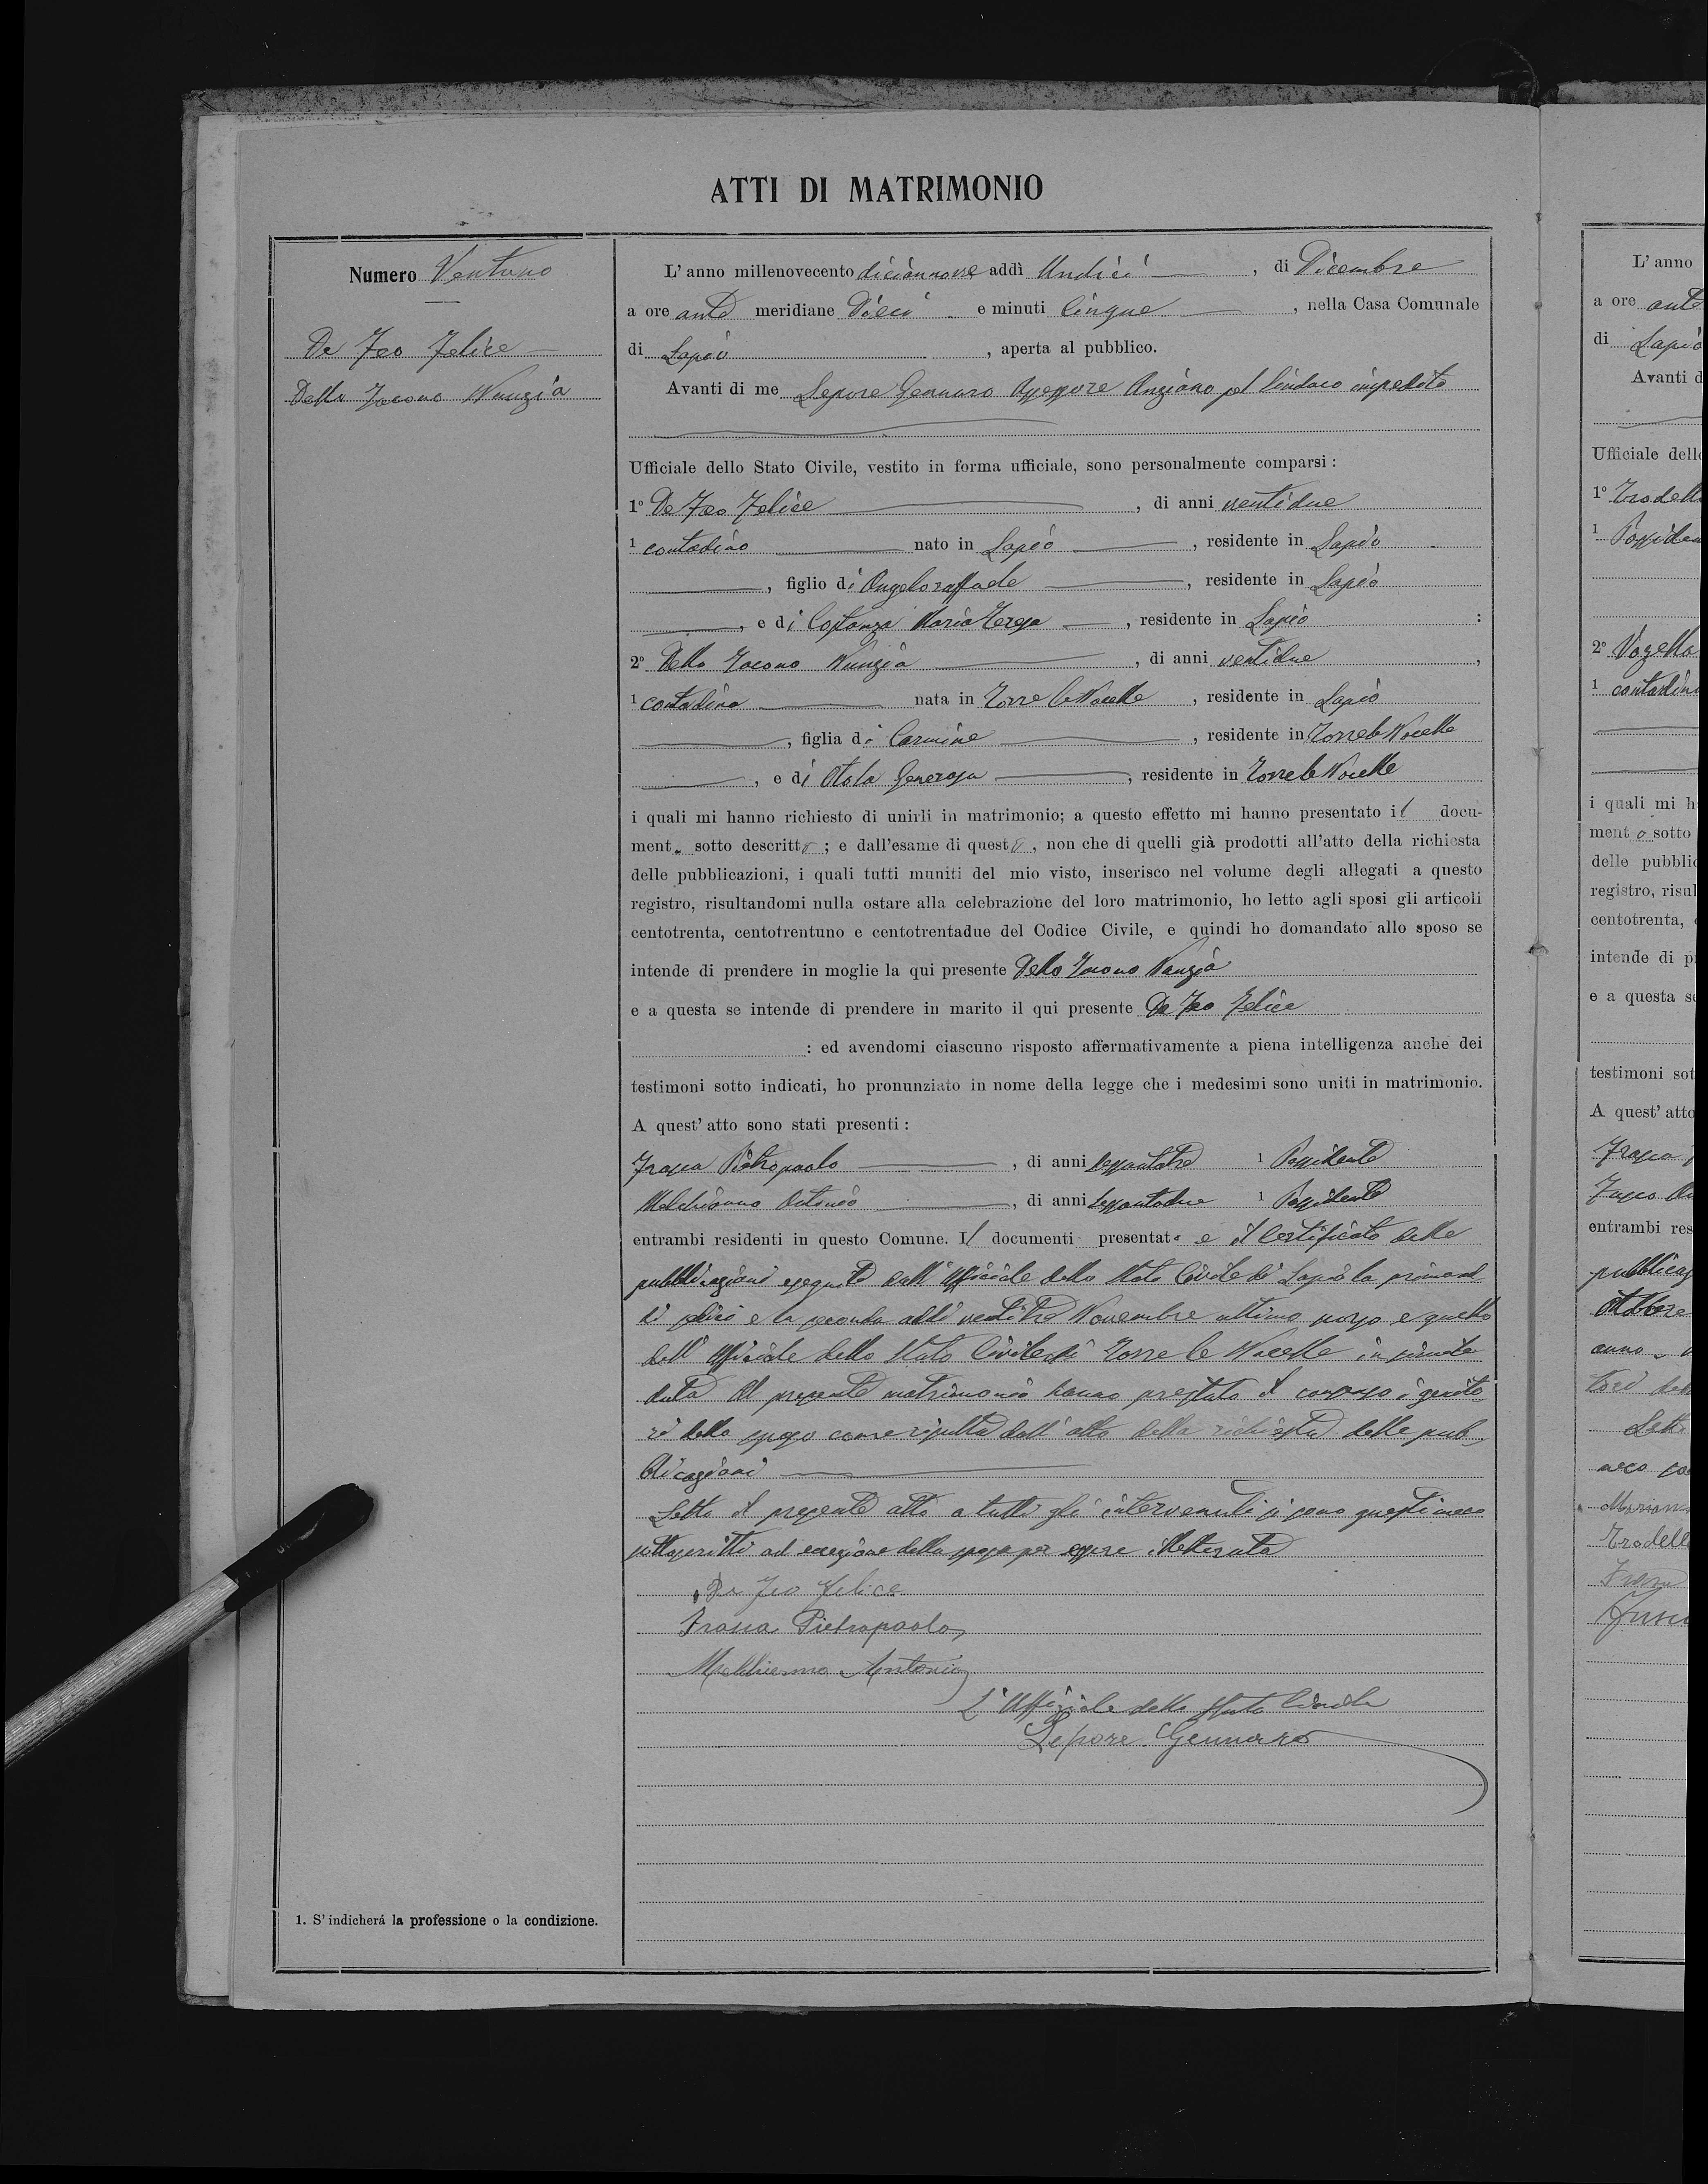 ATTI DI MATRIMONIO
Numero Ventuno
De Feo Felice
Dello Jacono Nunzia
L'anno millenovecento diciannove addì Undici, di Dicembre
a ore anti meridiane Dieci e minuti Cinque, nella Casa Comunale
di Lapio, aperta al pubblico.
Avanti di me Lepore Gennaro Assessore Anziano pel Sindaco impedito
Ufficiale dello Stato Civile, vestito in forma ufficiale, sono personalmente comparsi:
1º De Feo Felice, di anni ventidue
1 contadino nato in Lapio, residente in Lapio
, figlio di Angeloraffaele, residente in Lapio
, e di Costanza Maria Teresa, residente in Lapio :
2º Dello Jacono Nunzia, di anni ventidue,
1 contadina nata in Torre le Nocelle, residente in Lapio
, figlia di Carmine, residente in Torre le Nocelle
, e di Generosa, residente in Torre le Nocelle
i quali mi hanno richiesto di unirli in matrimonio; a questo effetto mi hanno presentato il docu-
mento sotto descritto; e dall'esame di questo, non che di quelli già prodotti all'atto della richiesta
delle pubblicazioni, i quali tutti muniti del mio visto, inserisco nel volume degli allegati a questo
registro, risultandomi nulla ostare alla celebrazione del loro matrimonio, ho letto agli sposi gli articoli
centotrenta, centotrentuno e centotrentadue del Codice Civile, e quindi ho domandato allo sposo se
intende di prendere in moglie la qui presente Dello Jacono Nunzia
e a questa se intende di prendere in marito il qui presente De Feo Felice
: ed avendomi ciascuno risposto affermativamente a piena intelligenza anche dei
testimoni sotto indicati, ho pronunziato in nome della legge che i medesimi sono uniti in matrimonio.
A quest'atto sono stati presenti:
Frasca Pietropaolo, di anni sessantatre 1 Possidente
Melchionna Antonio, di anni sessantadue 1 Possidente
entrambi residenti in questo Comune. Il documenti presentato e il Certificato delle
pubblicazioni eseguite dall'Ufficiale dello Stato Civile di Lapio la prima il
dì sedici e la seconda addì ventitre Novembre ultimo scorso e quello
dell'Ufficiale dello Stato Civile di Torre le Nocelle in simile
data Al presente matrimonio hanno prestato il consenso i genito
ri dello sposo come risulta dall'atto della richiesta delle pub
blicazioni
Letto il presente atto a tutti gli intervenuti si sono questi meco
sottoscritti ad eccezione della sposa per essere illetterata
De Feo Felice
Frasca Pietropaolo
Melchionna Antonio
L'Uffiziale dello Stato Civile
Lepore Gennaro
1. S'indicherá la professione o la condizione.
L'anno
a ore anti
di Lapio
Avanti d
Ufficiale dello
1º
1 Possiden
2º
1 contadina
i quali mi h
mento sotto
delle pubblic
registro, risul
centotrenta,
intende di p
e a questa se
testimoni sot
A quest'atto
Frasca
entrambi res
pubblicaz
Ottobre
anno
Letto
meco